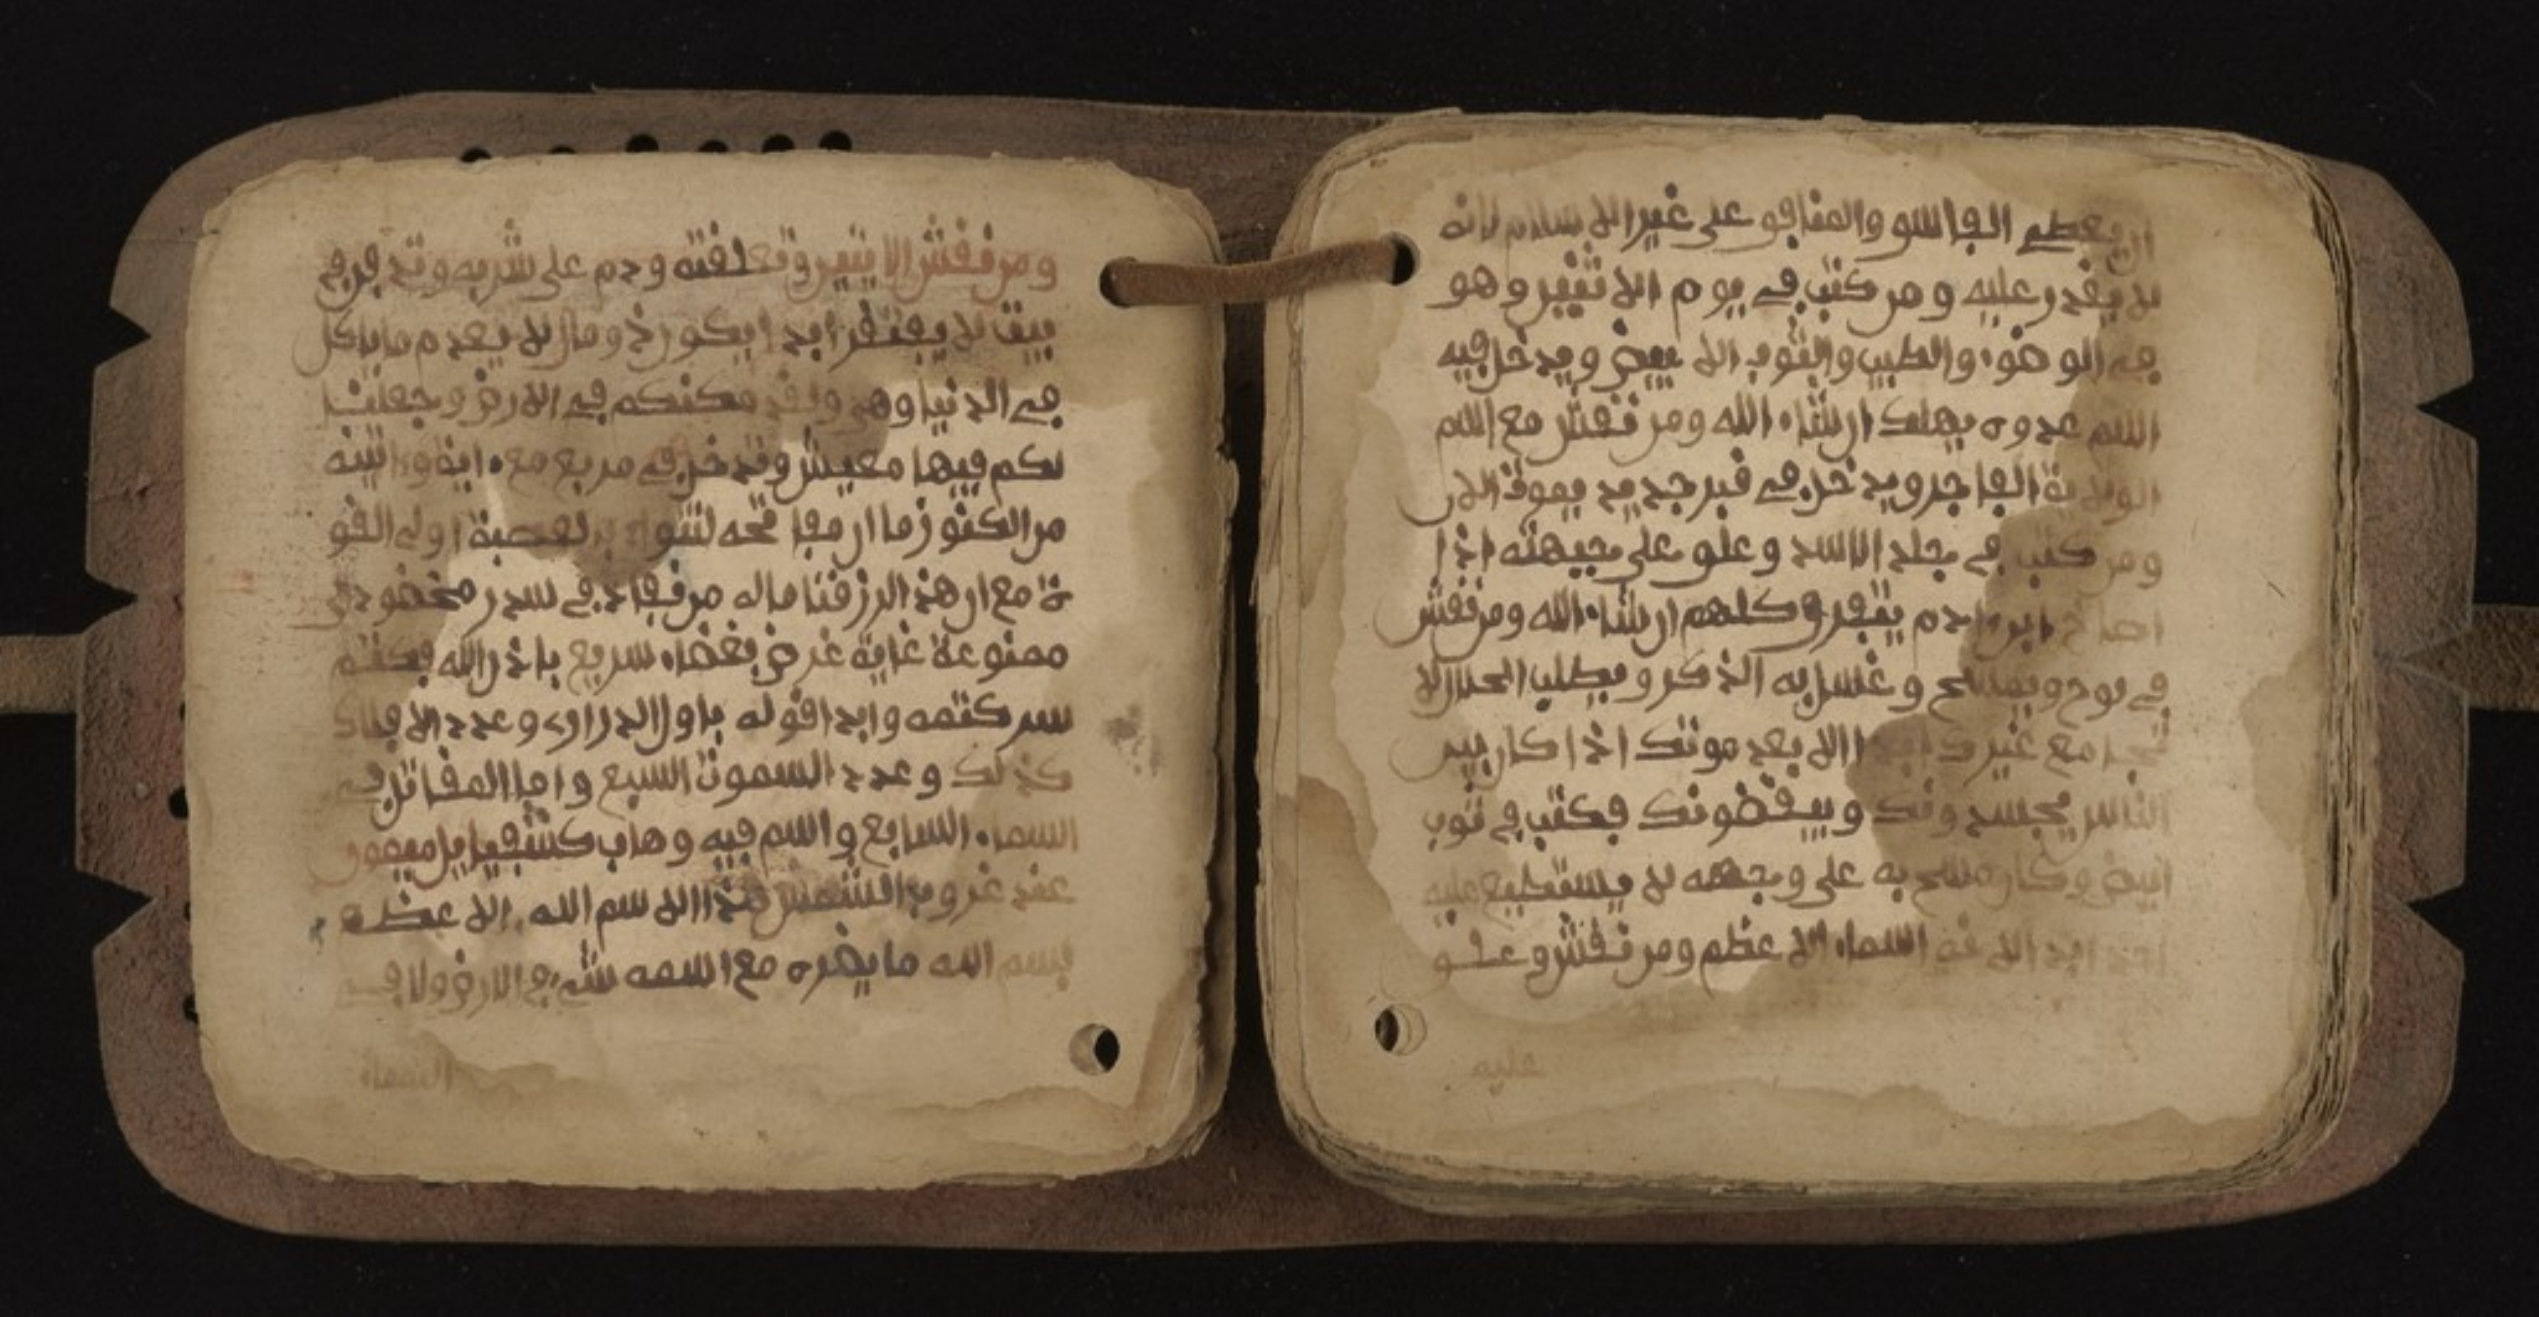 ان يعطي الفاسق والمنافق على غير الاسلام لانه
لا يقدر عليه ومن كتب في يوم الاثنين وهو
في الوضوء والطيب والثوب الابيض ويدخل فيه
اسم عدوه يهلك ان شاء الله ومن نقش مع اسم
الولاية الفاجر ويدخل في قبر جديد يموت الان
ومن كتب في جلد الاسد وعلق على جبهته اذا
ابن ادم يتفرق كلهم ان شاء الله ومن نقش
في لوح وغسل به الذكر ويطلب الحلال لا
مع غيرك الا بعد موتك اذا كان بين
الناس يحسدونك ويبغضونك فكتب في ثوب
ابيض وكان مسح به على وجهه لا يستطيع عليه
احد ابدا اسماء الاعظم ومن نقش وعلق
عليه
ومن نقش الاثنين وتعلقته ودم على شربه وتدفن في
بيت لا يفتقر ابدا ايكون ذو مال لا يعدم ما ياكل
في الدنيا وهي ولقد مكنكم في الارض وجعلنا
لكم فيها معيش وتدخل في مربع معه اية واتينه
من الكنوز ما ان مفاتحه لتنوا بالعصبة اولى القو
ة مع ان هذا لرزقنا ماله من نفاد في سدر مخضود
ممنوعة غاية غرض بغضاء سريع باذن الله فكتم
سر كتمه وابدا قوله باول الدراري وعدد الافلاك
كذلك وعدد السموت السبع واما المقاتل في
السماء السابع واسم فيه وهاب كشفياييل ميمون
عند غروب الشمس هذا الاسم الله الاعظم
بسم الله ما يضره مع اسمه شيء في الارض ولا في
السماء